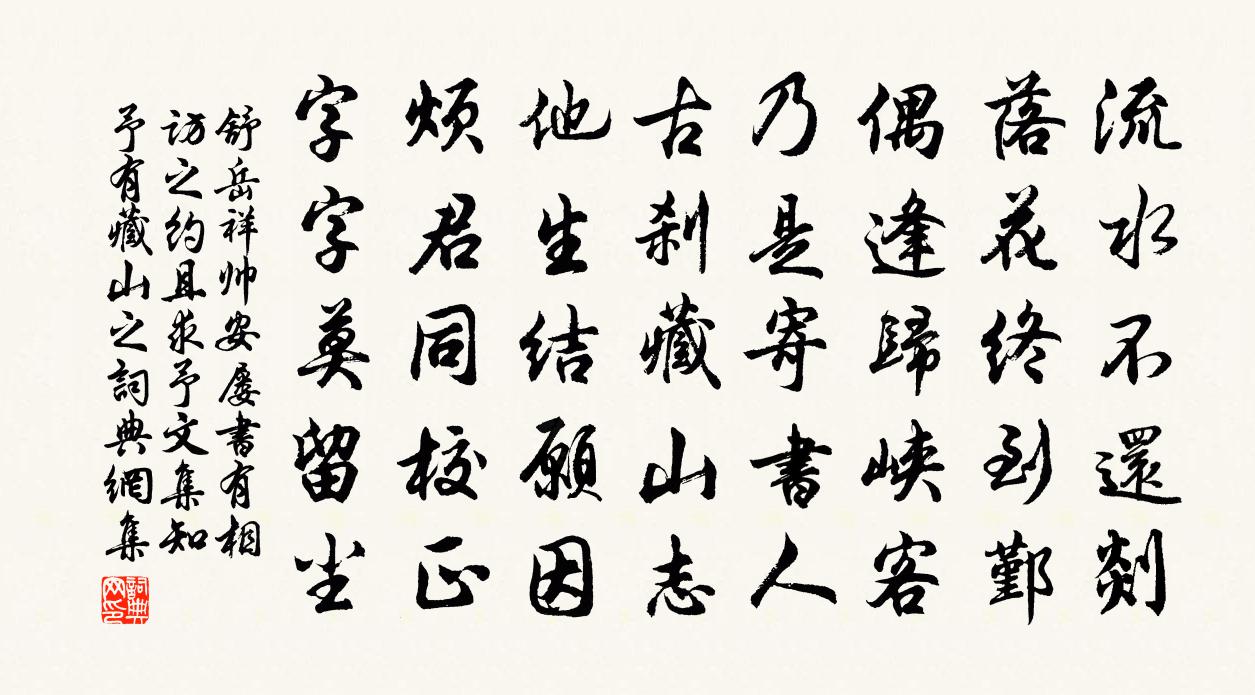 流水不還剡
落花終到鄞
偶逢歸峽客
乃是寄書人
古刹藏山志
他生結願因
煩君同校正
字字莫留尘
舒岳祥帅安屡書有相
访之约且求予文集知
予有藏山之詞典網集
詞典網印